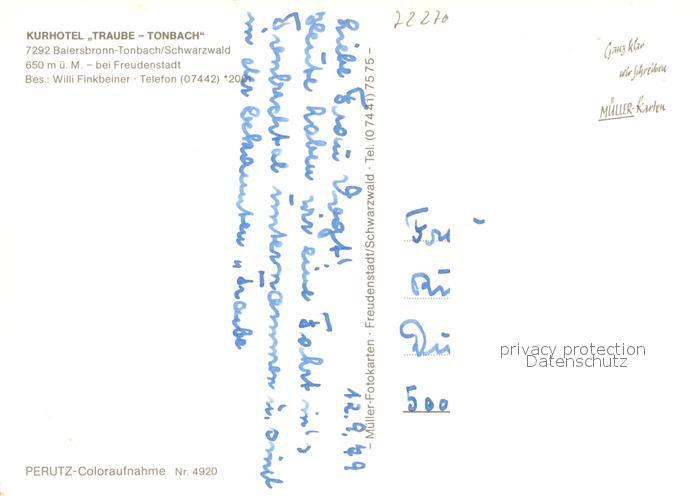 KURHOTEL „TRAUBE – TONBACH"
7292 Baiersbronn-Tonbach/Schwarzwald
650 m ü. M. – bei Freudenstadt
Bes.: Willi Finkbeiner · Telefon (07442) *20
22270
Ganz klar
wir schreiben
MÜLLER-Karten
12.9.79
Liebe Frau Vogt!
Heute haben wir eine Fahrt in's
unternommen u. sind
in der bekannten „Traube
– Müller-Fotokarten · Freudenstadt/Schwarzwald · Tel. (0 74 41) 75 75 –
Dü
500
privacy protection
Datenschutz
PERUTZ-Coloraufnahme Nr. 4920